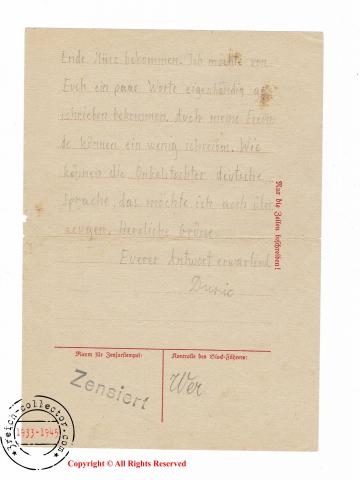 Ende März bekommen. Ich möchte von
Euch ein paar Worte eigenhändig ge
schrieben bekommen. Auch meine Freun
de können ein wenig schreiben. Wie
können die Onkelstochter deutsche
Sprache, das möchte ich auch über
zeugen. Herzliche Grüsse.
Euerer Antwort erwartend
Nur die Zeilen beschreiben!
Raum für Zensurstempel:
Kontrolle des Block-Führers:
Zensiert
3reich-collector.com
1933-1945
Copyright © All Rights Reserved